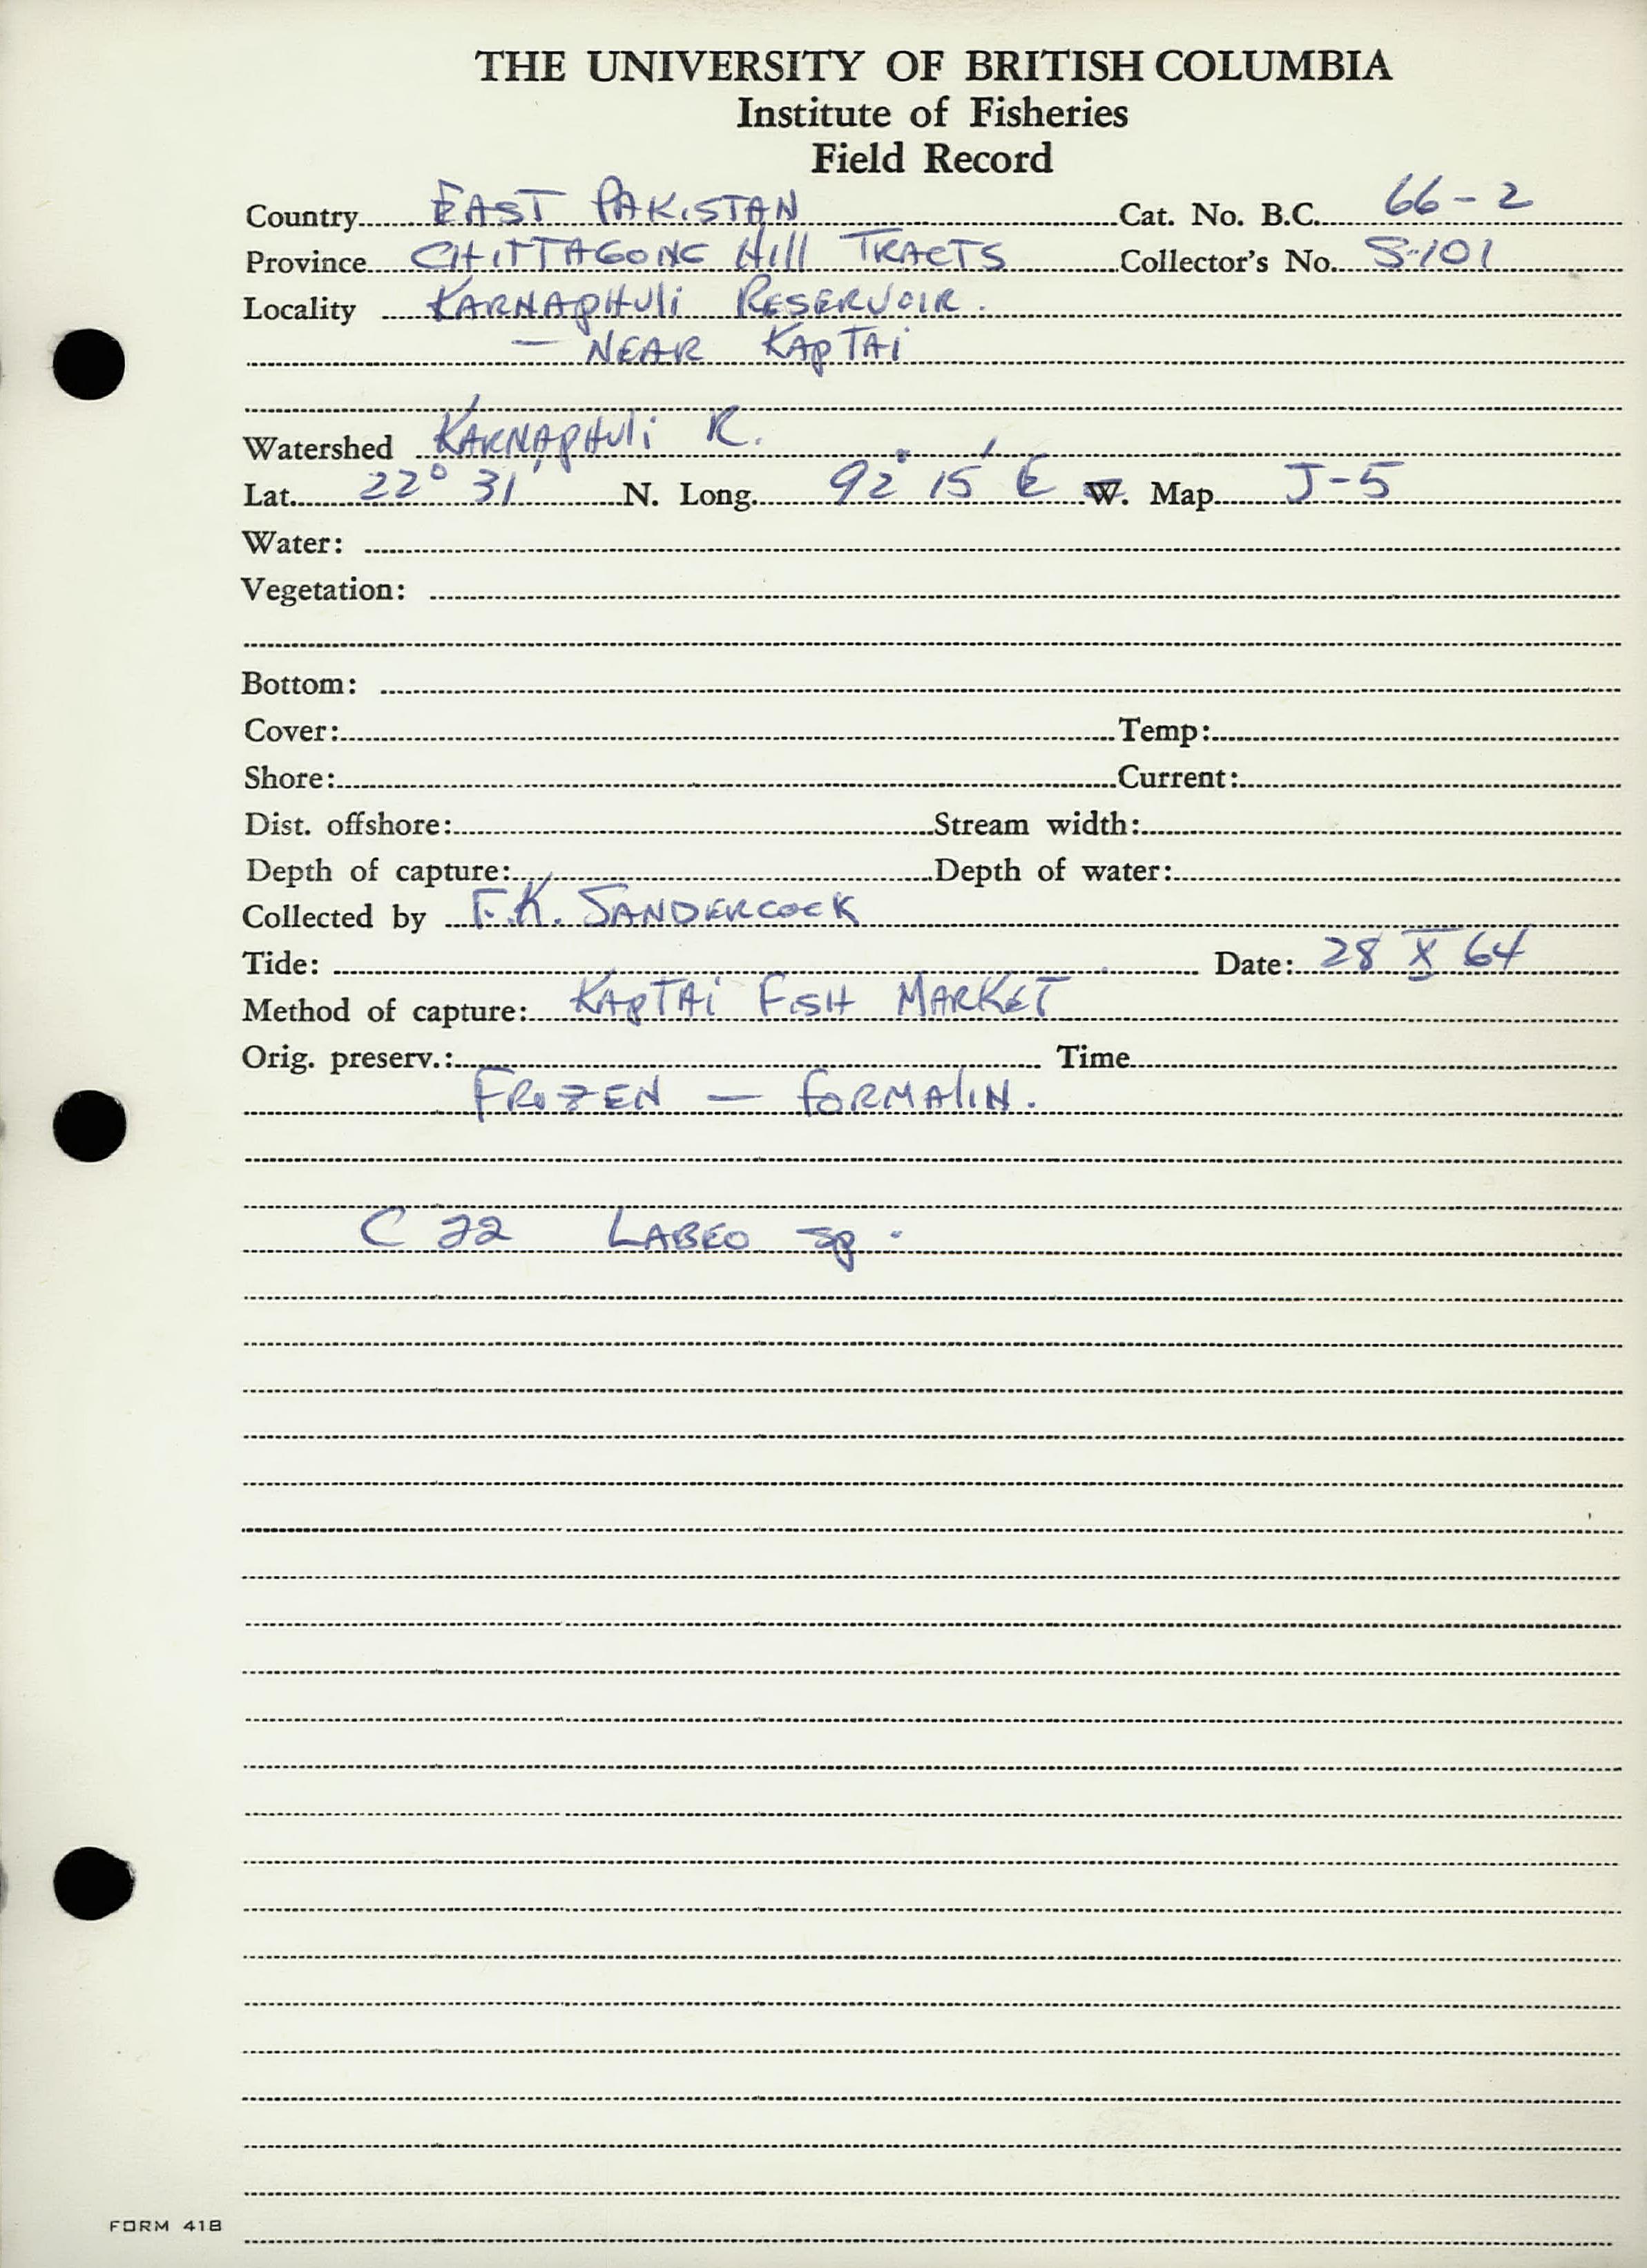 THE UNIVERSITY OF BRITISH COLUMBIA
Institute of Fisheries
Field Record
Country EAST PAKISTAN Cat. No. B.C. 66-2
Province CHITTAGONG Hill TRACTS Collector's No. S-101
Locality KARNAPHULi RESERVOIR.
— NEAR KAPTAi
Watershed KARNAPHULi R.
Lat. 22° 31' N. Long. 92° 15' E W. Map J-5
Water:
Vegetation:
Bottom:
Cover: Temp:
Shore: Current:
Dist. offshore: Stream width:
Depth of capture: Depth of water:
Collected by F.K. SANDERCOCK
Tide: Date: 28 X 64
Method of capture: KAPTAi FISH MARKET
Orig. preserv.: Time
FROZEN — FORMALIN.
C 22 LABEO sp.
FORM 41B